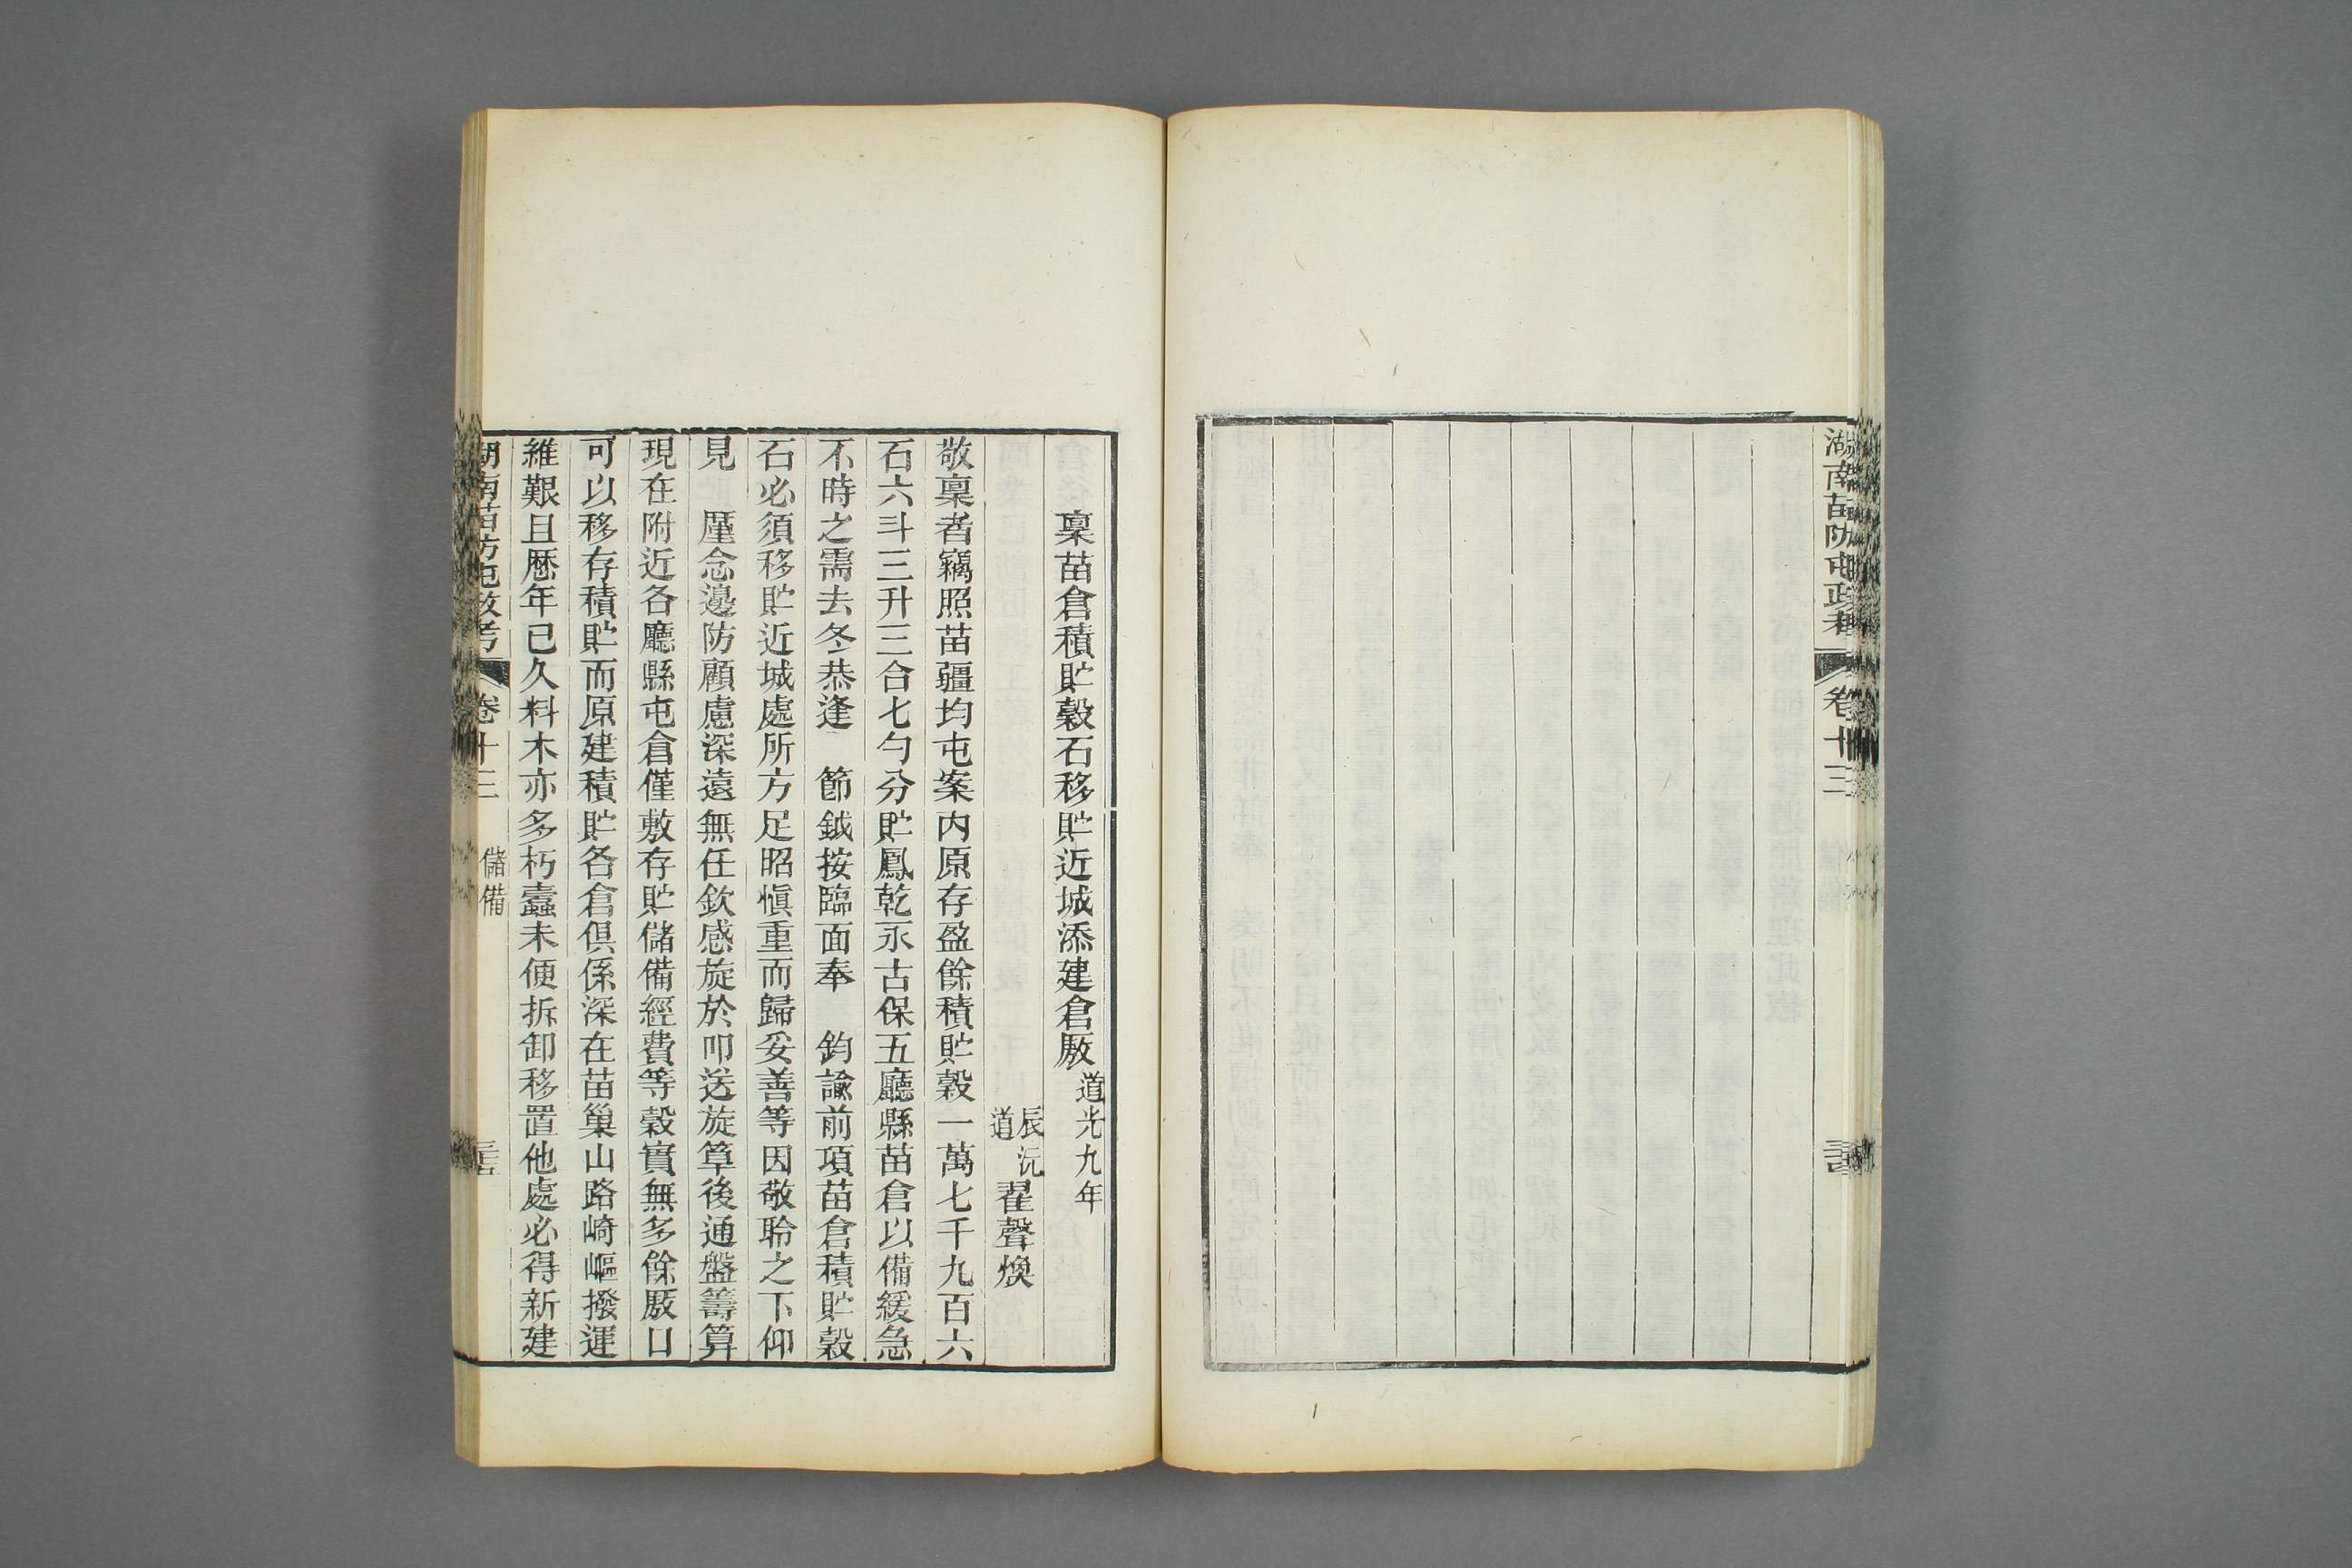 湖南苗防屯政考 卷十三
稟苗倉積貯穀石移貯近城添建倉厫 道光九年
辰沅道 翟聲煥
敬稟者竊照苗疆均屯案內原存盈餘積貯穀一萬七千九百六
石六斗三升三合七勺分貯鳳乾永古保五廳縣苗倉以備緩急
不時之需去冬恭逢 節鉞按臨面奉 鈞諭前項苗倉積貯穀
石必須移貯近城處所方足昭慎重而歸妥善等因敬聆之下仰
見 厪念邊防顧慮深遠無任欽感旋於叩送旋篁後通盤籌算
現在附近各廳縣屯倉僅敷存貯儲備經費等穀實無多餘厫口
可以移存積貯而原建積貯各倉俱係深在苗巢山路崎嶇撥運
維艱且歷年已久料木亦多朽蠹未便拆卸移置他處必得新建
湖南苗防屯政考 卷十三 儲備